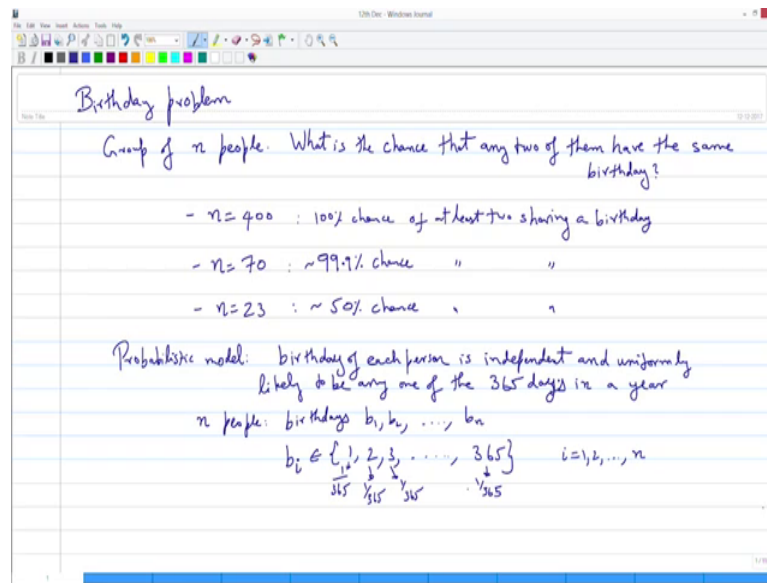 12th Dec - Windows Journal
File Edit View Insert Actions Tools Help
B I
Note Title
12-12-2017
Birthday problem
Group of n people. What is the chance that any two of them have the same
birthday?
- n=400 : 100% chance of at least two sharing a birthday
- n=70 : ~99.9% chance " "
- n=23 : ~50% chance " "
Probabilistic model: birthday of each person is independent and uniformly
likely to be any one of the 365 days in a year
n people: birthdays b₁, b₂, ...., bₙ
bᵢ ∈ {1, 2, 3, ....., 365} i=1,2,..., n
1/365 1/365 1/365 1/365